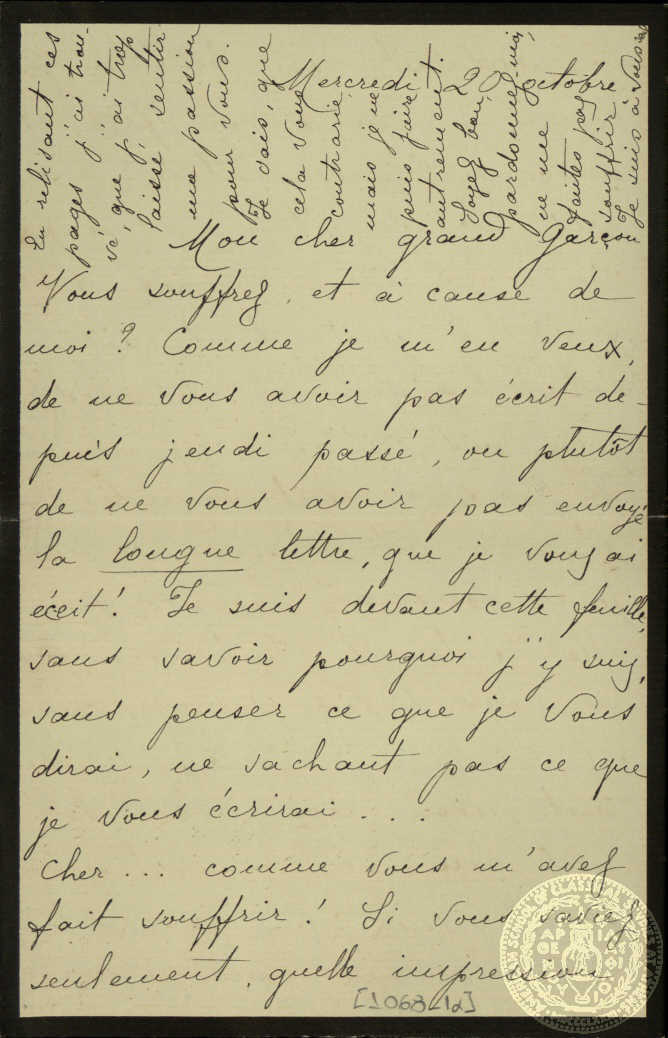 Mercredi 20 octobre.
Mon cher grand Garçon
Vous souffrez, et à cause de
moi? Comme je m'en veux,
de ne vous avoir pas écrit de-
puis jeudi passé, ou plutôt
de ne vous avoir pas envoyé
la longue lettre, que je vous ai
écrit! Je suis devant cette feuille,
sans savoir pourquoi j'y suis,
sans penser ce que je vous
dirai, ne sachant pas ce que
je vous écrirai . . .
Cher ... comme vous m'avez
fait souffrir! Si vous saviez
seulement, quelle impression
[1068-1α]
En relisant ces
pages j'ai trou-
vé, que j'ai trop
laissé sentir
ma passion
pour vous.
Je sais, que
cela vous
contrarie,
mais je ne
puis faire
autrement.
Soyez bon,
pardonnez-moi,
ne me
faites pas
souffrir.
Je suis à vous